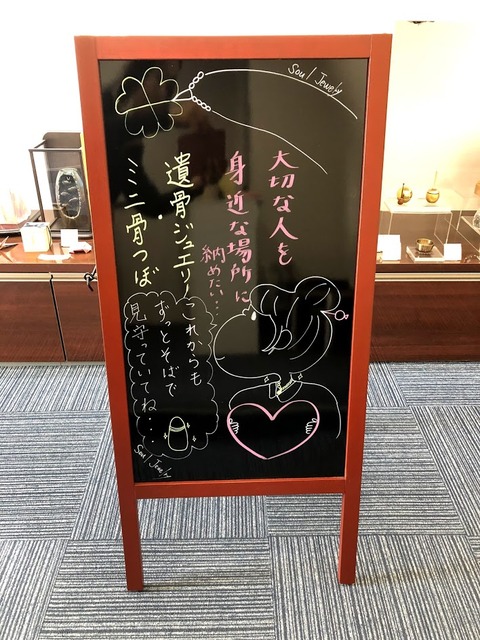 Soul Jewelry
大切な人を
身近な場所に
納めたい…
遺骨ジュエリー
ミニ骨つぼ
これからも
ずっとそばで
見守っていてね…
Soul Jewelry